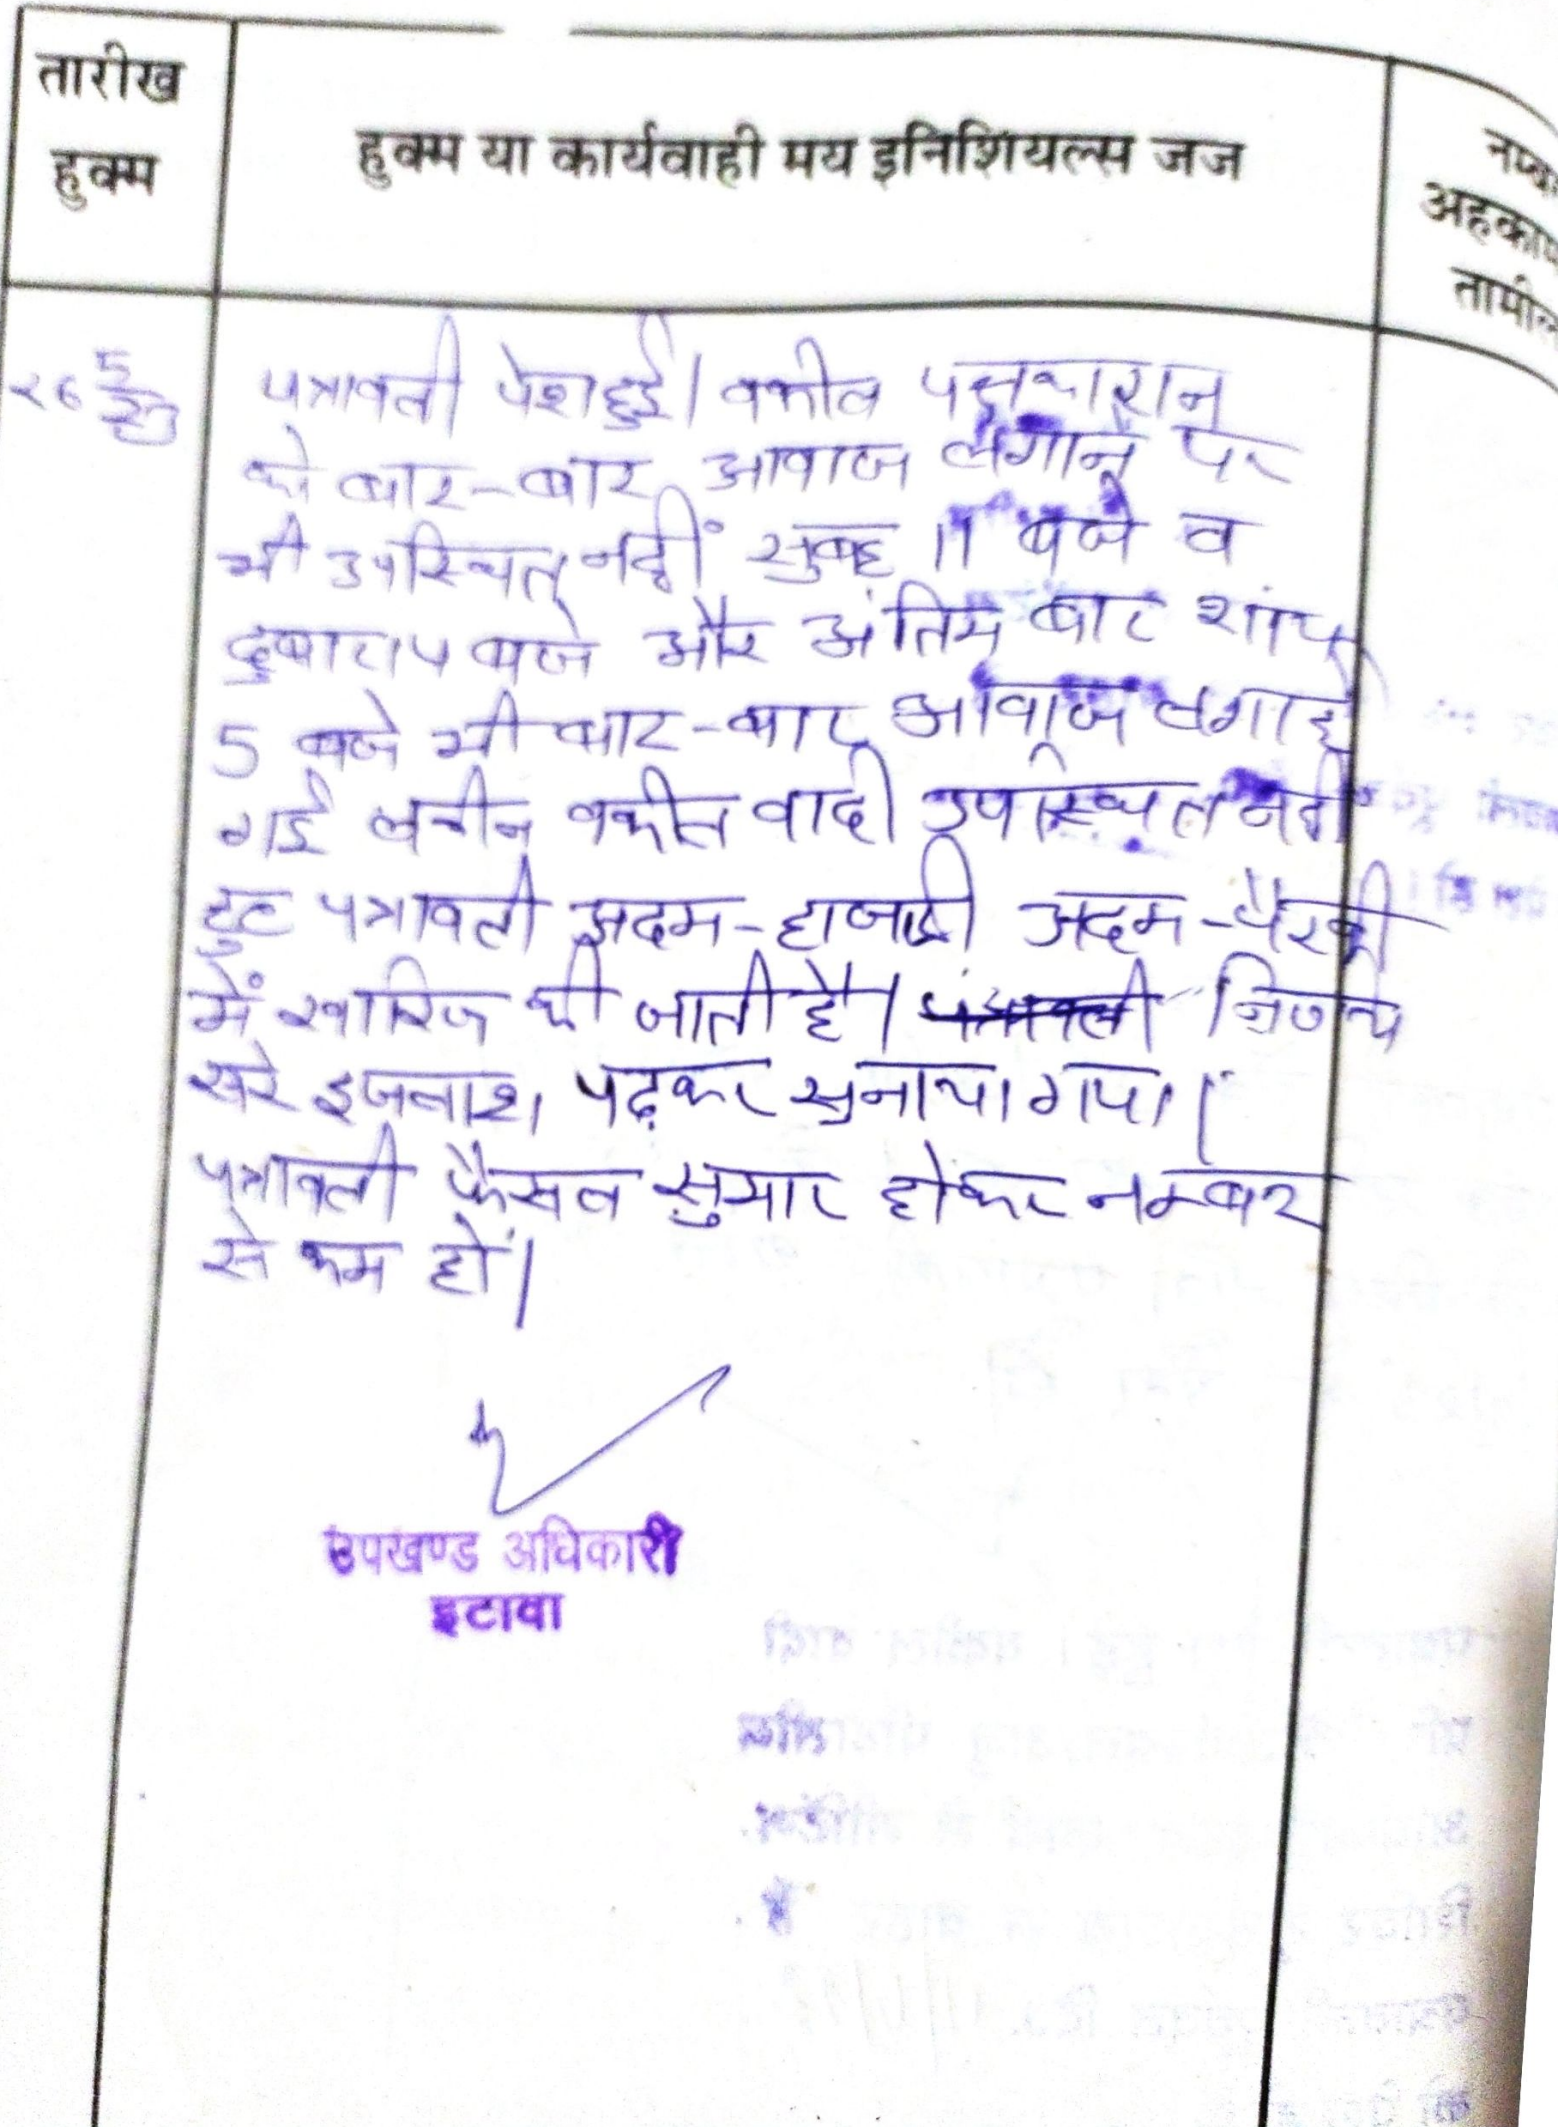 तारीख
हुक्म
हुक्म या कार्यवाही मय इनिशियल्स जज
अहकाम
तामील
26 5
पत्रावली पेश हुई। वकील पक्षकारान
को बार-बार आवाज लगाने पर
भी उपस्थित नहीं सुबह 11 बजे व
दुबारा 4 बजे और अंतिम बार शांय
5 बजे भी बार-बार आवाज लगाई
गई वकील वादी उपस्थित नहीं
हुए पत्रावली अदम-हाजारी अदम-पैरवी
में खारिज की जाती है। पत्रावली निर्णय
सरे इजलाश पढ़कर सुनाया गया।
पत्रावली फैसल सुमार होकर नम्बर
से कम हों।
उपखण्ड अधिकारी
इटावा